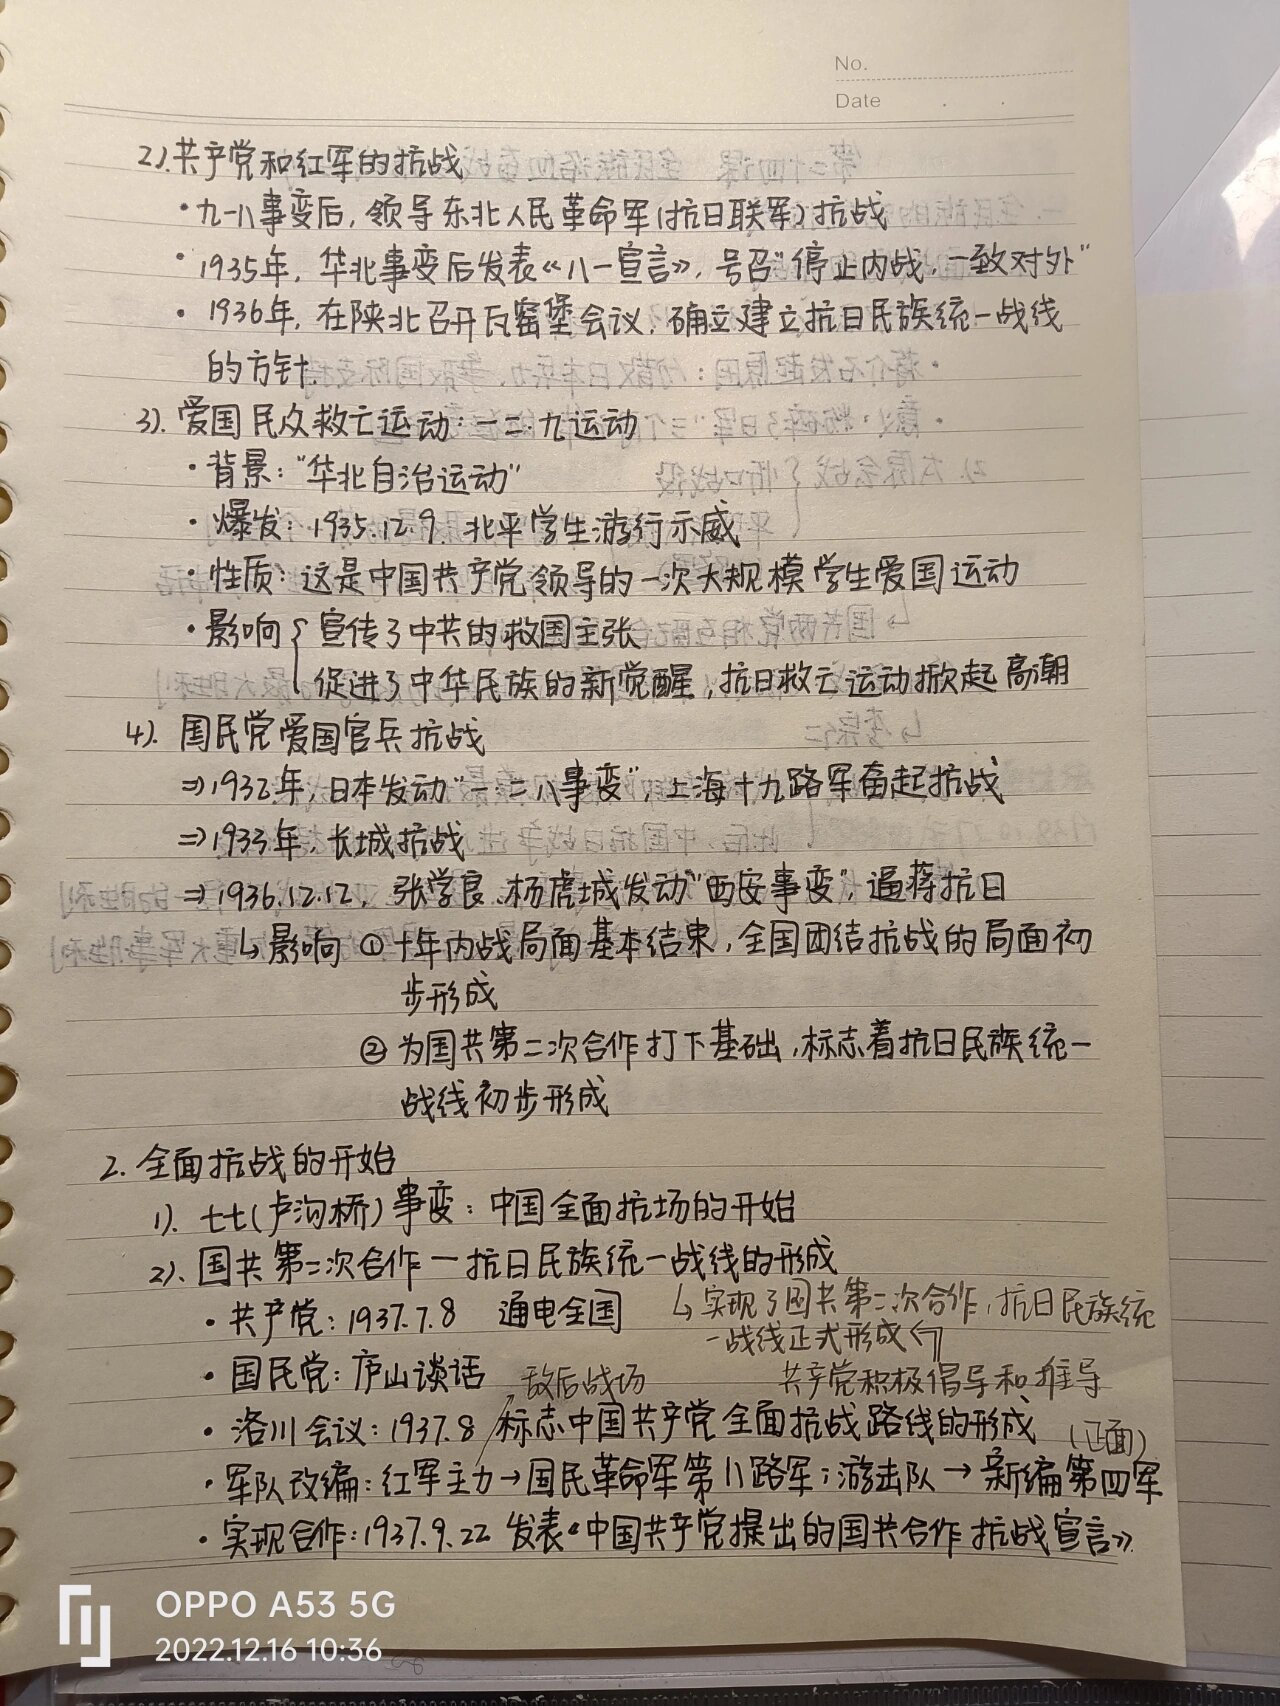 No.
Date
2).共产党和红军的抗战
·九一八事变后，领导东北人民革命军(抗日联军)抗战
·1935年，华北事变后发表《八一宣言》，号召"停止内战，一致对外"
·1936年，在陕北召开瓦窑堡会议，确立建立抗日民族统一战线
的方针.
3).爱国民众救亡运动：一二·九运动
·背景："华北自治运动"
·爆发：1935.12.9，北平学生游行示威
·性质：这是中国共产党领导的一次大规模学生爱国运动
·影响{宣传了中共的救国主张
促进了中华民族的新觉醒，抗日救亡运动掀起高潮
4).国民党爱国官兵抗战
⇒1932年，日本发动"一二八事变"，上海十九路军奋起抗战
⇒1933年，长城抗战
⇒1936.12.12，张学良、杨虎城发动"西安事变"，逼蒋抗日
↳影响 ①十年内战局面基本结束，全国团结抗战的局面初
步形成
②为国共第二次合作打下基础，标志着抗日民族统一
战线初步形成
2.全面抗战的开始
1).七七(卢沟桥)事变：中国全面抗场的开始
2).国共第二次合作—抗日民族统一战线的形成
·共产党：1937.7.8 通电全国
↳实现了国共第二次合作，抗日民族统
一战线正式形成
·国民党：庐山谈话
敌后战场
共产党积极倡导和推导
·洛川会议：1937.8 标志中国共产党全面抗战路线的形成
(正面)
·军队改编：红军主力→国民革命军第八路军；游击队→新编第四军
·实现合作：1937.9.22 发表《中国共产党提出的国共合作抗战宣言》.
OPPO A53 5G
2022.12.16 10:36